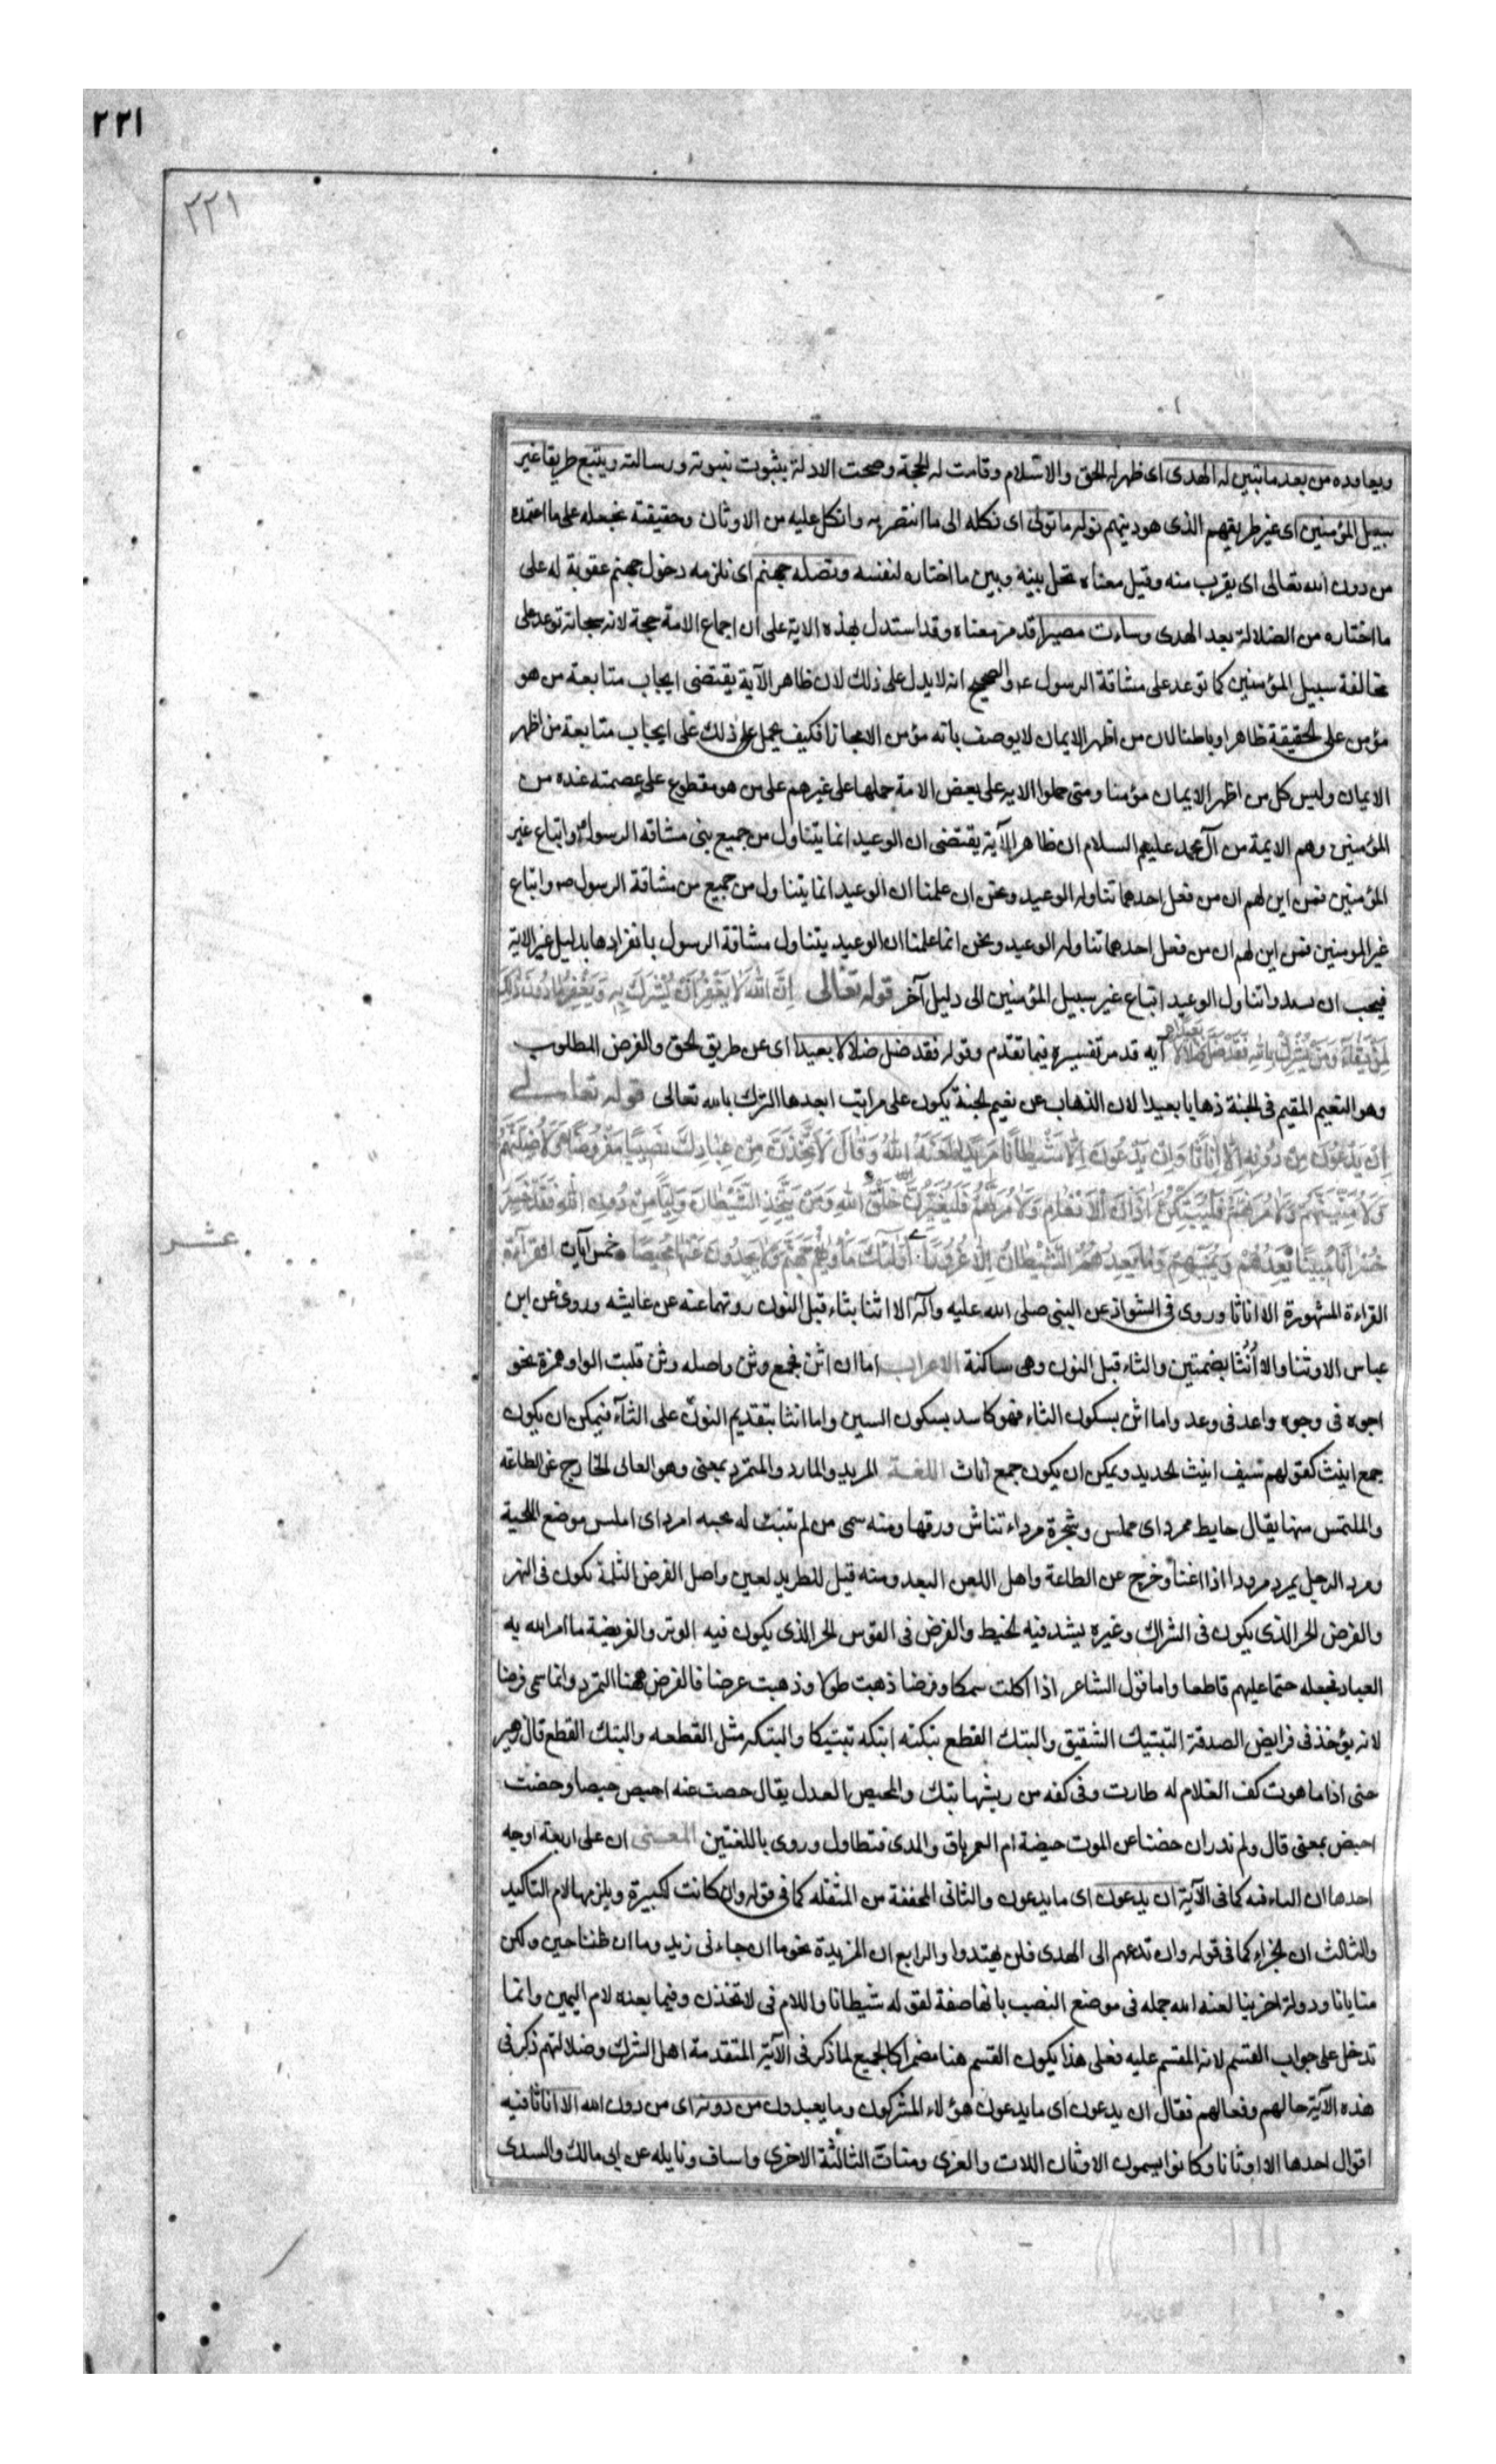 ٢٢١
٢٢١
ويعاوده من بعد ما تبين له الهدى اى ظهر له الحق والاسلام وقامت له الحجة وصحت الادلة بثبوت نبوته ورسالته ويتبع طريقا غير
سبيل المؤمنين اى غير طريقهم الذى هو دينهم نوله ما تولى اى نكله الى ما انتصر به واتكل عليه من الاوثان وحقيقته نجعله على ما اعتمده
من دون الله تعالى اى يقرب منه وقيل معناه نخل بينه وبين ما اختاره لنفسه ونصله جهنم اى نلزمه دخول جهنم عقوبة له على
ما اختاره من الضلالة بعد الهدى وساءت مصيرا قد مر معناه وقد استدل بهذه الاية على ان اجماع الامة حجة لانه سبحانه توعد على
مخالفة سبيل المؤمنين كما توعد على مشاقة الرسول عم والصحيح انه لا يدل على ذلك لان ظاهر الآية يقتضى ايجاب متابعة من هو
مؤمن على الحقيقة ظاهرا وباطنا لان من اظهر الايمان لا يوصف بانه مؤمن الا مجازا فكيف يحمل على ذلك على ايجاب متابعة من اظهر
الايمان وليس كل من اظهر الايمان مؤمنا ومتى حملوا الايه على بعض الامة حملها على غيرهم على من هو مقطوع على عصمته عنده من
المؤمنين وهم الايمة من آل محمد عليهم السلام ان ظاهر الآية يقتضى ان الوعيد انما يتناول من جميع بنى مشاقه الرسول واتباع غير
المؤمنين فمن اين لهم ان من فعل احدهما تناوله الوعيد ونحن ان علمنا ان الوعيد انما يتناول من جميع من مشاقة الرسول ص واتباع
غير المومنين فمن اين لهم ان من فعل احدهما تناوله الوعيد ونحن انما علمنا ان الوعيد يتناول مشاقة الرسول بانفرادها بدليل غير الاية
فيجب ان يسدوا تناول الوعيد اتباع غير سبيل المؤمنين الى دليل آخر قوله تعالى اِنَّ اللهَ لَا يَغْفِرُ اَنْ يُشْرَكَ بِهِ وَيَغْفِرُ مَا دُونَ ذَلِكَ
لِمَنْ يَشَاءُ وَمَنْ يُشْرِكْ بِاللهِ فَقَدْ ضَلَّ ضَلَالًا بَعِيدًا آيه قد مر تفسيره فيما تقدم وقوله فقد ضل ضلالا بعيدا اى عن طريق الحق والغرض المطلوب
وهو النعيم المقيم فى الجنة ذهابا بعيدا لان الذهاب عن نعيم الجنة يكون على مراتب ابعدها الشرك بالله تعالى قوله تعالى
اِنْ يَدْعُونَ مِنْ دُونِهِ اِلَّا اِنَاثًا وَاِنْ يَدْعُونَ اِلَّا شَيْطَانًا مَرِيدًا لَعَنَهُ اللهُ وَقَالَ لَاَتَّخِذَنَّ مِنْ عِبَادِكَ نَصِيبًا مَفْرُوضًا وَلَاُضِلَّنَّهُمْ
وَلَاُمَنِّيَنَّهُمْ وَلَاٰمُرَنَّهُمْ فَلَيُبَتِّكُنَّ اٰذَانَ الْاَنْعَامِ وَلَاٰمُرَنَّهُمْ فَلَيُغَيِّرُنَّ خَلْقَ اللهِ وَمَنْ يَتَّخِذِ الشَّيْطَانَ وَلِيًّا مِنْ دُونِ اللهِ فَقَدْ خَسِرَ
خُسْرَانًا مُبِينًا يَعِدُهُمْ وَيُمَنِّيهِمْ وَمَا يَعِدُهُمُ الشَّيْطَانُ اِلَّا غُرُورًا اُولٰئِكَ مَاْوٰيهُمْ جَهَنَّمُ وَلَا يَجِدُونَ عَنْهَا مَحِيصًا خمس آيات القرآءة
عشر
القراءة المشهورة الا اناثا وروى فى الشواذ عن النبى صلى الله عليه وآله الا اثنا بثاء قبل النون روتهما عنه عن عايشه وروى عن ابن
عباس الا وثنا والا اُنُثا بضمتين والثاء قبل النون وهى ساكنة الاعراب اما ان اثن فجمع وثن واصله وثن قلبت الواو همزة نحو
اجوه فى وجوه واعد فى وعد واما اثن بسكون الثاء فهو كاسد بسكون السين واما انثا بتقديم النون على الثآء فيمكن ان يكون
جمع انيث كقولهم سيف انيث الحديد ويمكن ان يكون جمع اناث اللغة المريد والمارد والمتمرد بمعنى وهو العالى الخارج عن الطاعة
والملتمس منها يقال حايط ممرد اى مملس وشجرة مرداء تناش ورقها ومنه سمى من لم تنبت له لحيه امرد اى املس موضع اللحية
ومرد الرجل يمرد مرودا اذا اعتا وخرج عن الطاعة واهل اللعن البعد ومنه قيل للطريد لعين واصل الفرض الثلمة تكون فى النهر
والفرض الحز الذى يكون فى الشراك وغيره يشد فيه الخيط والفرض فى القوس الحز الذى يكون فيه الوتر والفريضة ما امر الله به
العباد فجعله حتما عليهم قاطعا واما قول الشاعر اذا اكلت سمكا وفرضا ذهبت طولا وذهبت عرضا فالفرض ههنا التمر وانما سمى فرضا
لانه يؤخذ فى فرايض الصدقة التبتيك الشقيق والبتك القطع بتكته ابتكه تبتيكا والبتكه مثل القطعه والبتك القطع قال زهير
حتى اذا ما هوت كف الغلام له طارت وفى كفه من ريشها بتك والمحيص العدل يقال حصت عنه احيص حيصا وحضت
احيض بمعنى قال ولم ندر ان حضنا عن الموت حيضة ام العمر باق والمدى فتطاول وروى باللغتين المعنى ان على اربعة اوجه
احدها ان الماء فيه كما فى الآية ان يدعون اى ما يدعون والثانى المخففة من المثقله كما فى قوله وان كانت لكبيرة ويلزمها لام التاكيد
والثالث ان الجزاء كما فى قوله وان تدعهم الى الهدى فلن يهتدوا والرابع ان المزيدة نحو ما ان جاءنى زيد وما ان طبنا حين ولكن
منايانا ودولة اخرينا لعنه الله جمله فى موضع النصب بانها صفة لقوله شيطانا واللام فى لاتخذن وفيما بعده لام اليمين وانما
تدخل على جواب القسم لانه المقسم عليه فعلى هذا يكون القسم هنا مضمرا كالجميع لما ذكر فى الآية المتقدمة اهل الشرك وضلالتهم ذكر فى
هذه الآية حالهم وفعالهم فقال ان يدعون اى ما يدعون هؤلاء المشركون وما يعبدون من دونه اى من دون الله الا اناثا فيه
اقوال احدها الا اوثانا وكانوا يسمون الاوثان اللات والعزى ومنات الثالثة الاخرى واساف ونايله عن ابى مالك والسدى